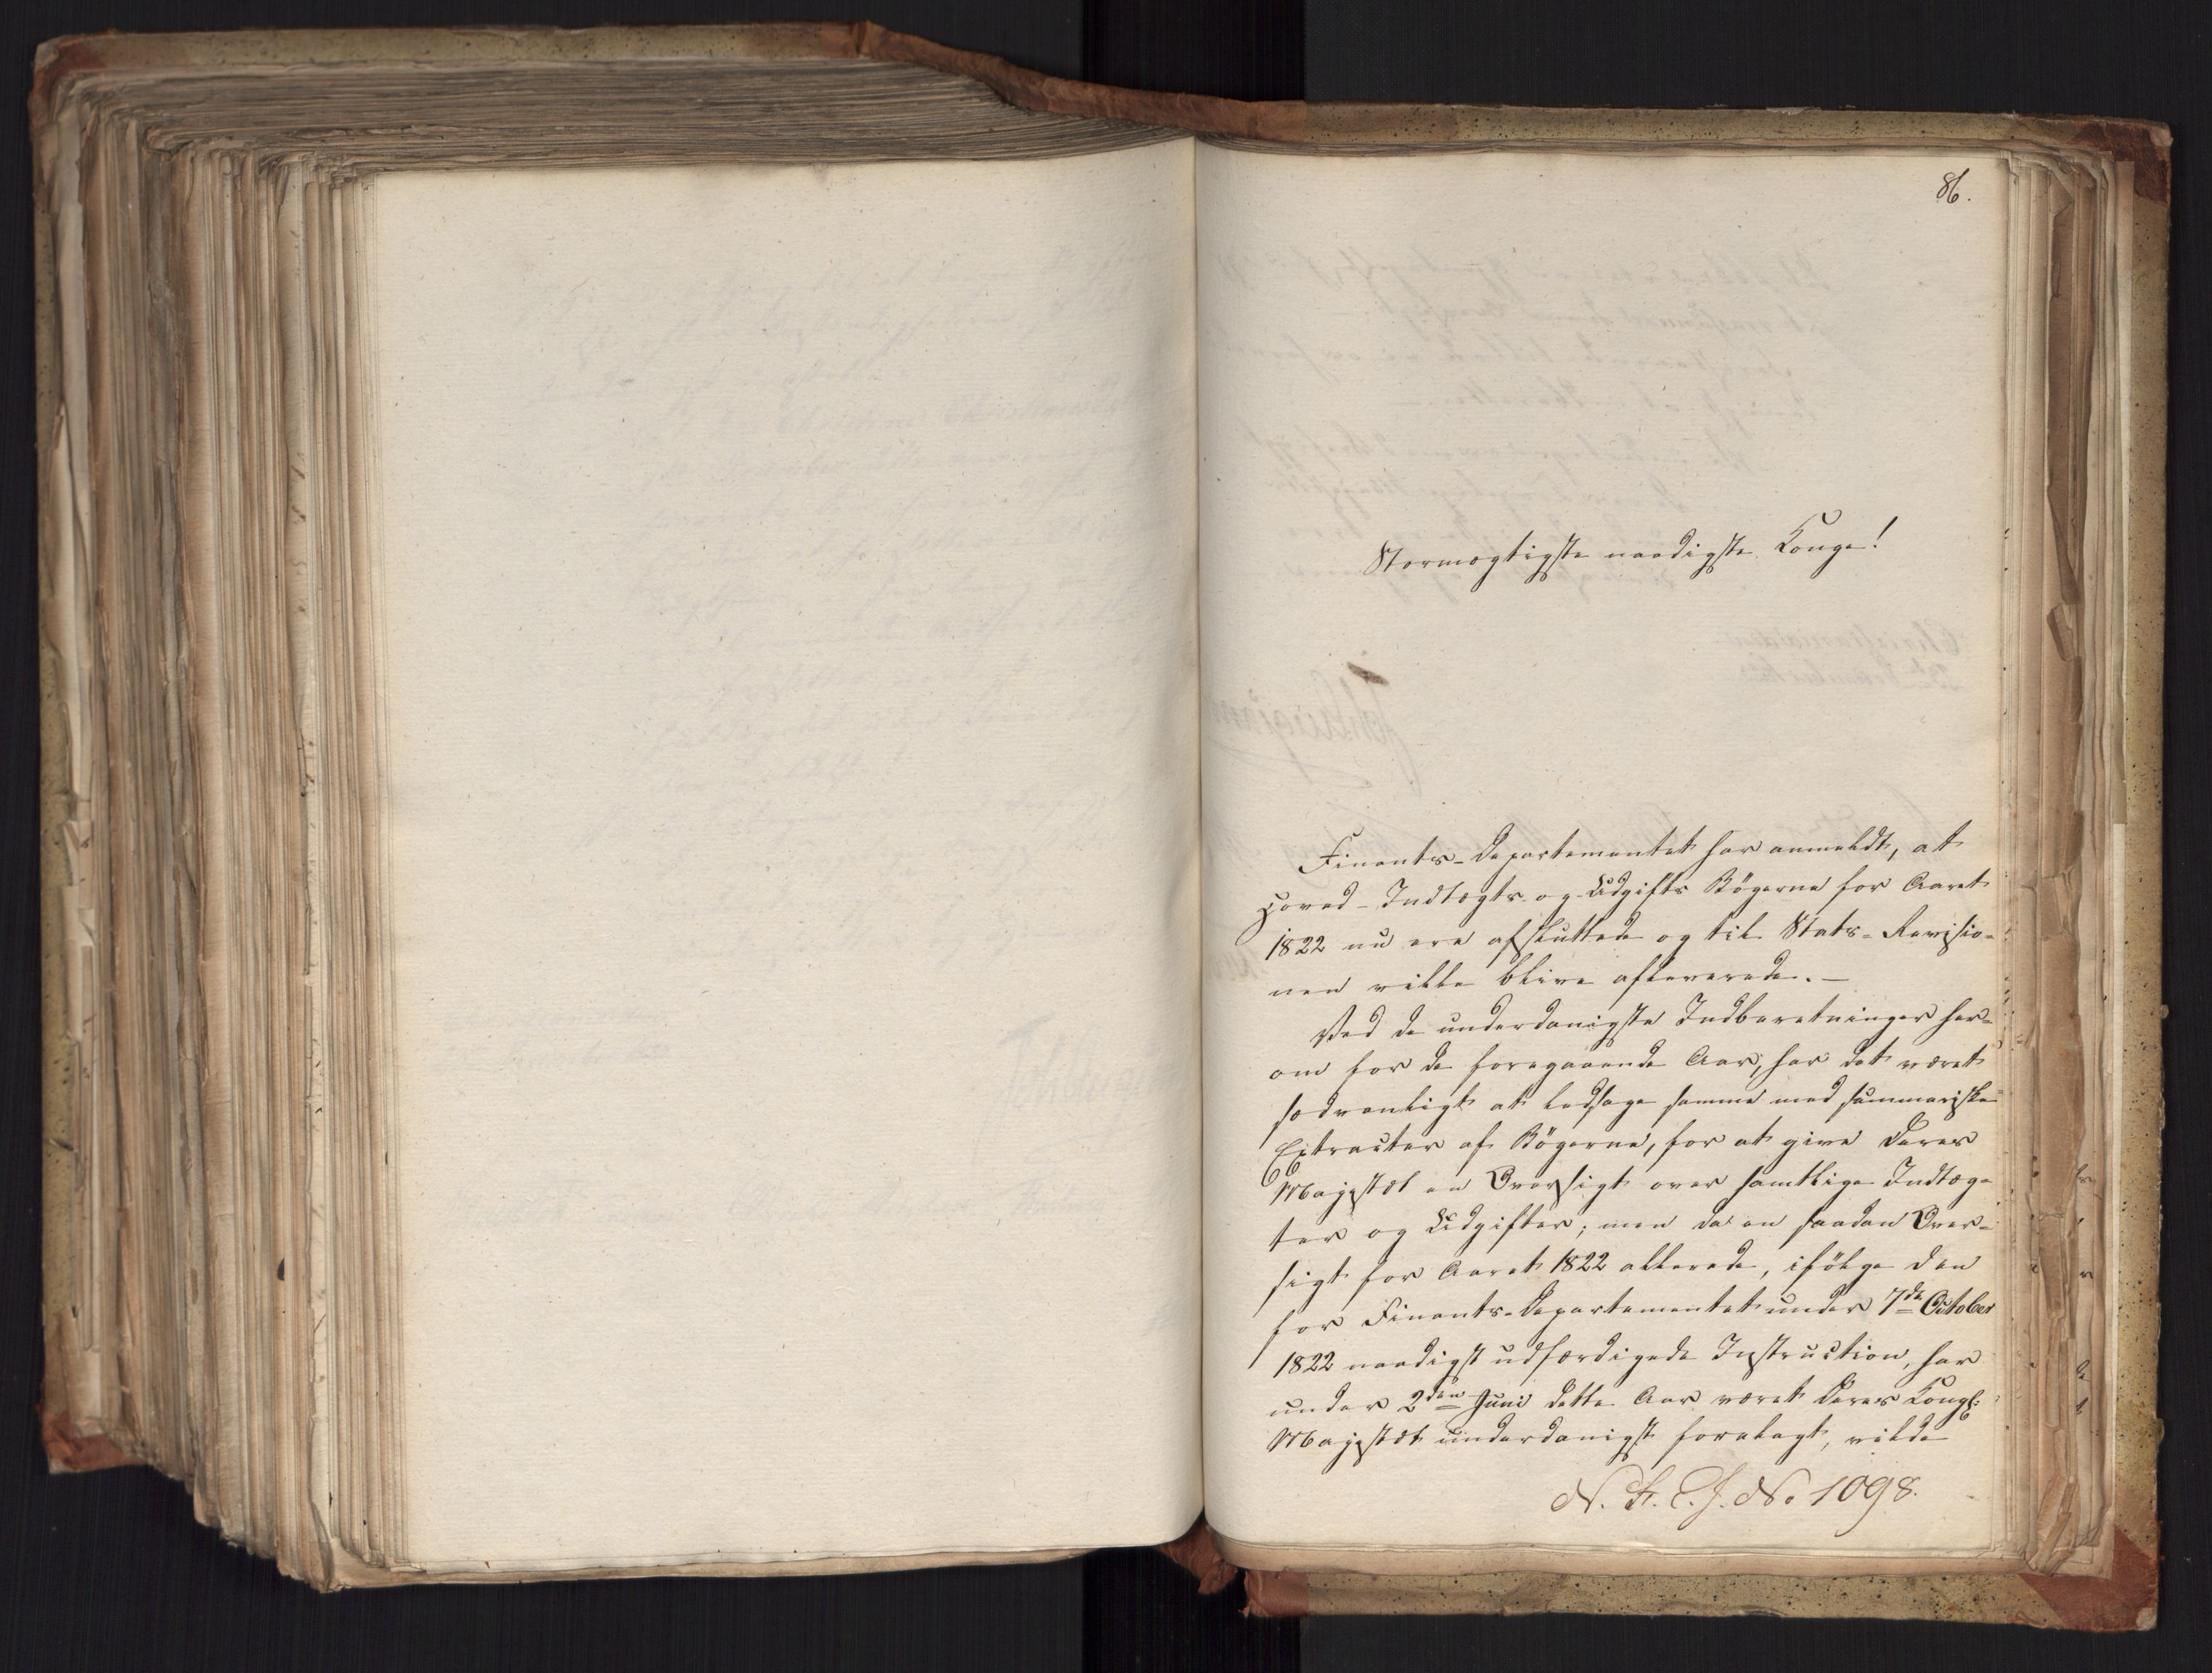 86.
Stormægtigste naadigste Konge!
Finants-Departementet har anmeldt, at
Hoved-Indtægts og Udgifts Bøgerne for Aaret
1822 nu ere afsluttede og til Stats-Revisio-
nen ville blive afleverede. —
Ved de underdanigste Indberetninger her-
om for de foregaaende Aar, har det været
sædvanligt at ledsage samme med summariske
Extracter af Bøgerne, for at give Deres
Majestæt en Oversigt over samtlige Indtæg-
ter og Udgifter; men da en saadan Over-
sigt for Aaret 1822 allerede, ifølge den
for Finants-Departementet under 7de October
1822 naadigst udfærdigede Instruction, har
under 2den Juni dette Aar været Deres Kongl:
Majestæt underdanigst forelagt, vilde
N. F. C. J. No 1098.